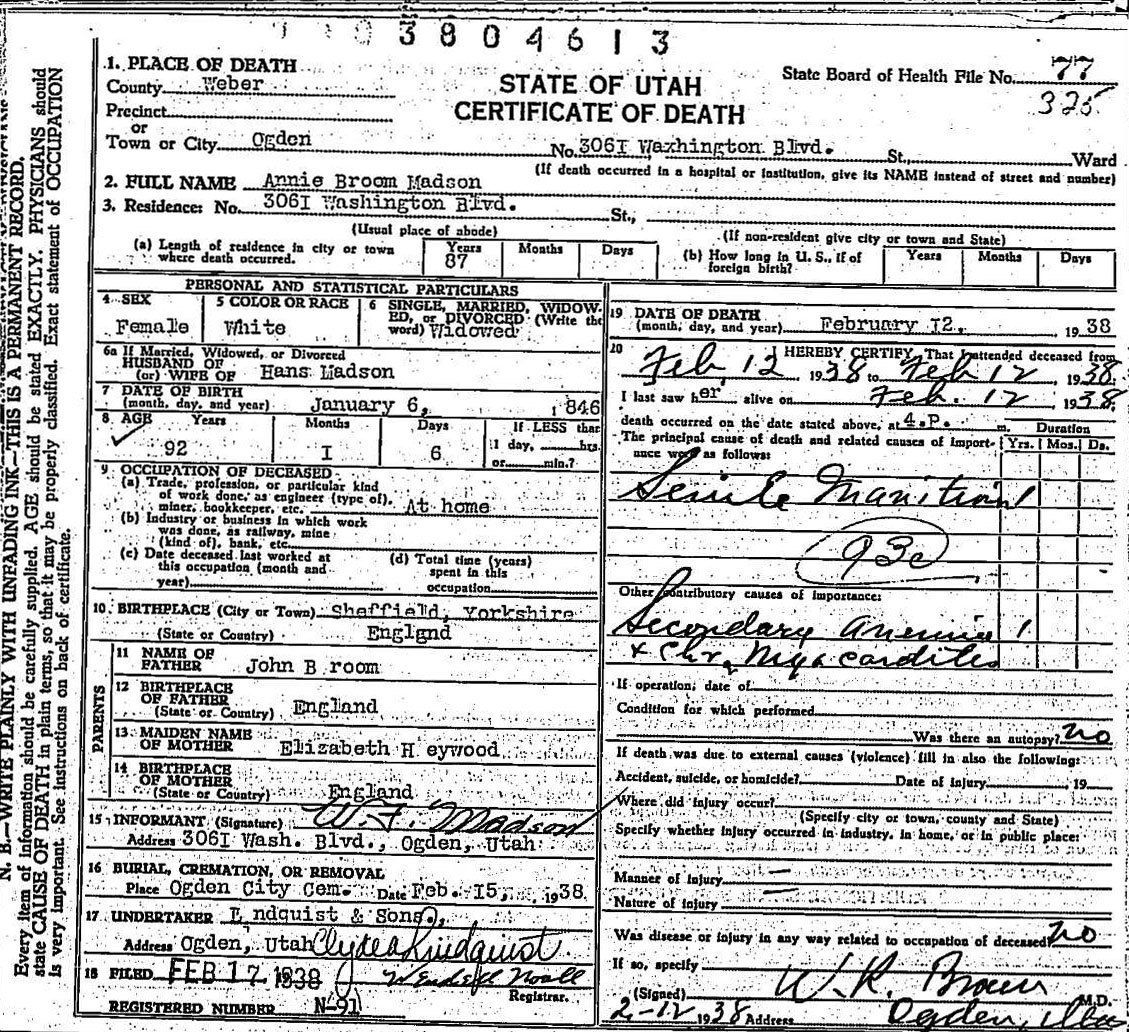 3804613
1. PLACE OF DEATH
County Weber
Precinct
or
Town or City Ogden
STATE OF UTAH
CERTIFICATE OF DEATH
State Board of Health File No. 77
325
No. 306I Waxhington Blvd. St., Ward
(If death occurred in a hospital or institution, give its NAME instead of street and number)
2. FULL NAME Annie Broom Madson
3. Residence: No. 306I Washington Blvd. St.,
(Usual place of abode) (If non-resident give city or town and State)
(a) Length of residence in city or town where death occurred. Years 87 Months Days
(b) How long in U. S., if of foreign birth? Years Months Days
PERSONAL AND STATISTICAL PARTICULARS
4 SEX Female
5 COLOR OR RACE White
6 SINGLE, MARRIED, WIDOWED, or DIVORCED (Write the word) Widowed
6a If Married, Widowed, or Divorced
HUSBAND OF
(or) WIFE OF Hans Madson
7 DATE OF BIRTH
(month, day, and year) January 6, 1846
8 AGE Years 92 Months I Days 6
If LESS than 1 day, hrs. or min.?
9 OCCUPATION OF DECEASED
(a) Trade, profession, or particular kind
of work done, as engineer (type of),
miner, bookkeeper, etc. At home
(b) Industry or business in which work
was done, as railway, mine
(kind of), bank, etc.
(c) Date deceased last worked at
this occupation (month and
year)
(d) Total time (years)
spent in this
occupation
10. BIRTHPLACE (City or Town) Sheffield, Yorkshire
(State or Country) Englgnd
PARENTS
11 NAME OF
FATHER John B room
12 BIRTHPLACE
OF FATHER
(State or Country) England
13 MAIDEN NAME
OF MOTHER Elizabeth H eywood
14 BIRTHPLACE
OF MOTHER
(State or Country) England
15 INFORMANT (Signature) W. F. Madson
Address 306I Wash. Blvd., Ogden, Utah
16 BURIAL, CREMATION, OR REMOVAL
Place Ogden City Cem. Date Feb. I5, 1938
17 UNDERTAKER L ndquist & Sons,
Address Ogden, Utah Clyde Lindquist
18 FILED FEB 17 1938
Registrar.
REGISTERED NUMBER N-91
19 DATE OF DEATH
(month, day, and year) February I2, 1938
20 I HEREBY CERTIFY, That I attended deceased from
Feb 12 1938 to Feb 12, 1938
I last saw her alive on Feb. 12 1938
death occurred on the date stated above, at 4.P. m. Duration
The principal cause of death and related causes of importance were as follows: Yrs. Mos. Ds.
Senile
93c
Other contributory causes of importance:
Secondary Anemia 1
& Chr. Myocarditis
If operation, date of
Condition for which performed
Was there an autopsy? no
If death was due to external causes (violence) fill in also the following:
Accident, suicide, or homicide? Date of injury 19
Where did injury occur?
(Specify city or town, county and State)
Specify whether injury occurred in industry, in home, or in public place:
Manner of injury
Nature of injury
Was disease or injury in any way related to occupation of deceased? no
If so, specify
(Signed) W. R. Brown M.D.
2-12 1938 Address Ogden,
N. B.—WRITE PLAINLY WITH UNFADING INK—THIS IS A PERMANENT RECORD.
Every item of information should be carefully supplied. AGE should be stated EXACTLY. PHYSICIANS should
state CAUSE OF DEATH in plain terms, so that it may be properly classified. Exact statement of OCCUPATION
is very important. See instructions on back of certificate.